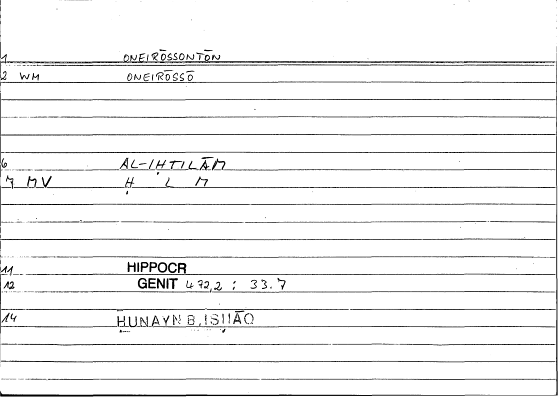 1 ONEIRŌSSONTŌN
2 WM ONEIRŌSSŌ
6 AL-IḤTILĀM
7 MV Ḥ L M
11 HIPPOCR
12 GENIT 472,2 : 33.7
14 ḤUNAYN B. ISḤĀQ